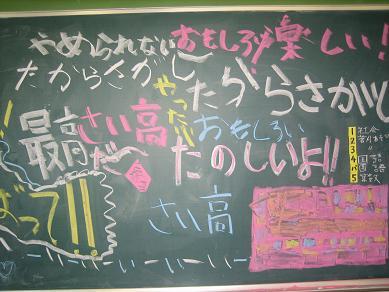 やめられないおもしろ!楽しい!
たからさがし
やったー
たからさがし
最高だ〜
さい高
おもしろい
たのしいよ!!
って!!
さい高
1 社会
2
3
4 国語
5